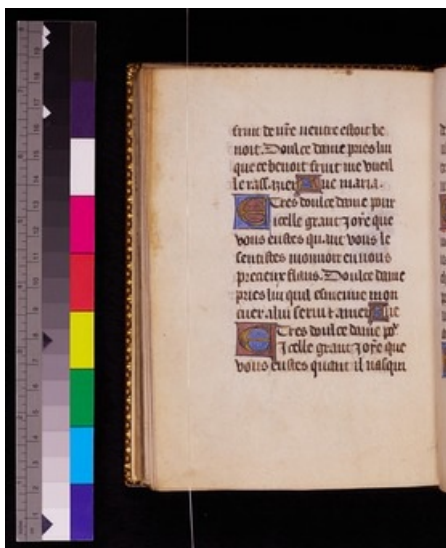 fruit de vr̃e ventre estoit be
noit. Doulce dame pries lui
que ce benoit fruit me vueil
le rassazier Aue maria.
E Tres doulce dame pour
icelle grant Joye que
vous eustes quant vous le
sentistes mouuoir en uous
precieux flans. Doulce dame
pries lui quil esmeuue mon
cuer a lui seruir & amer Aue
E Tres doulce dame por
Icelle grant Joye que
vous eustes quant il nasqui